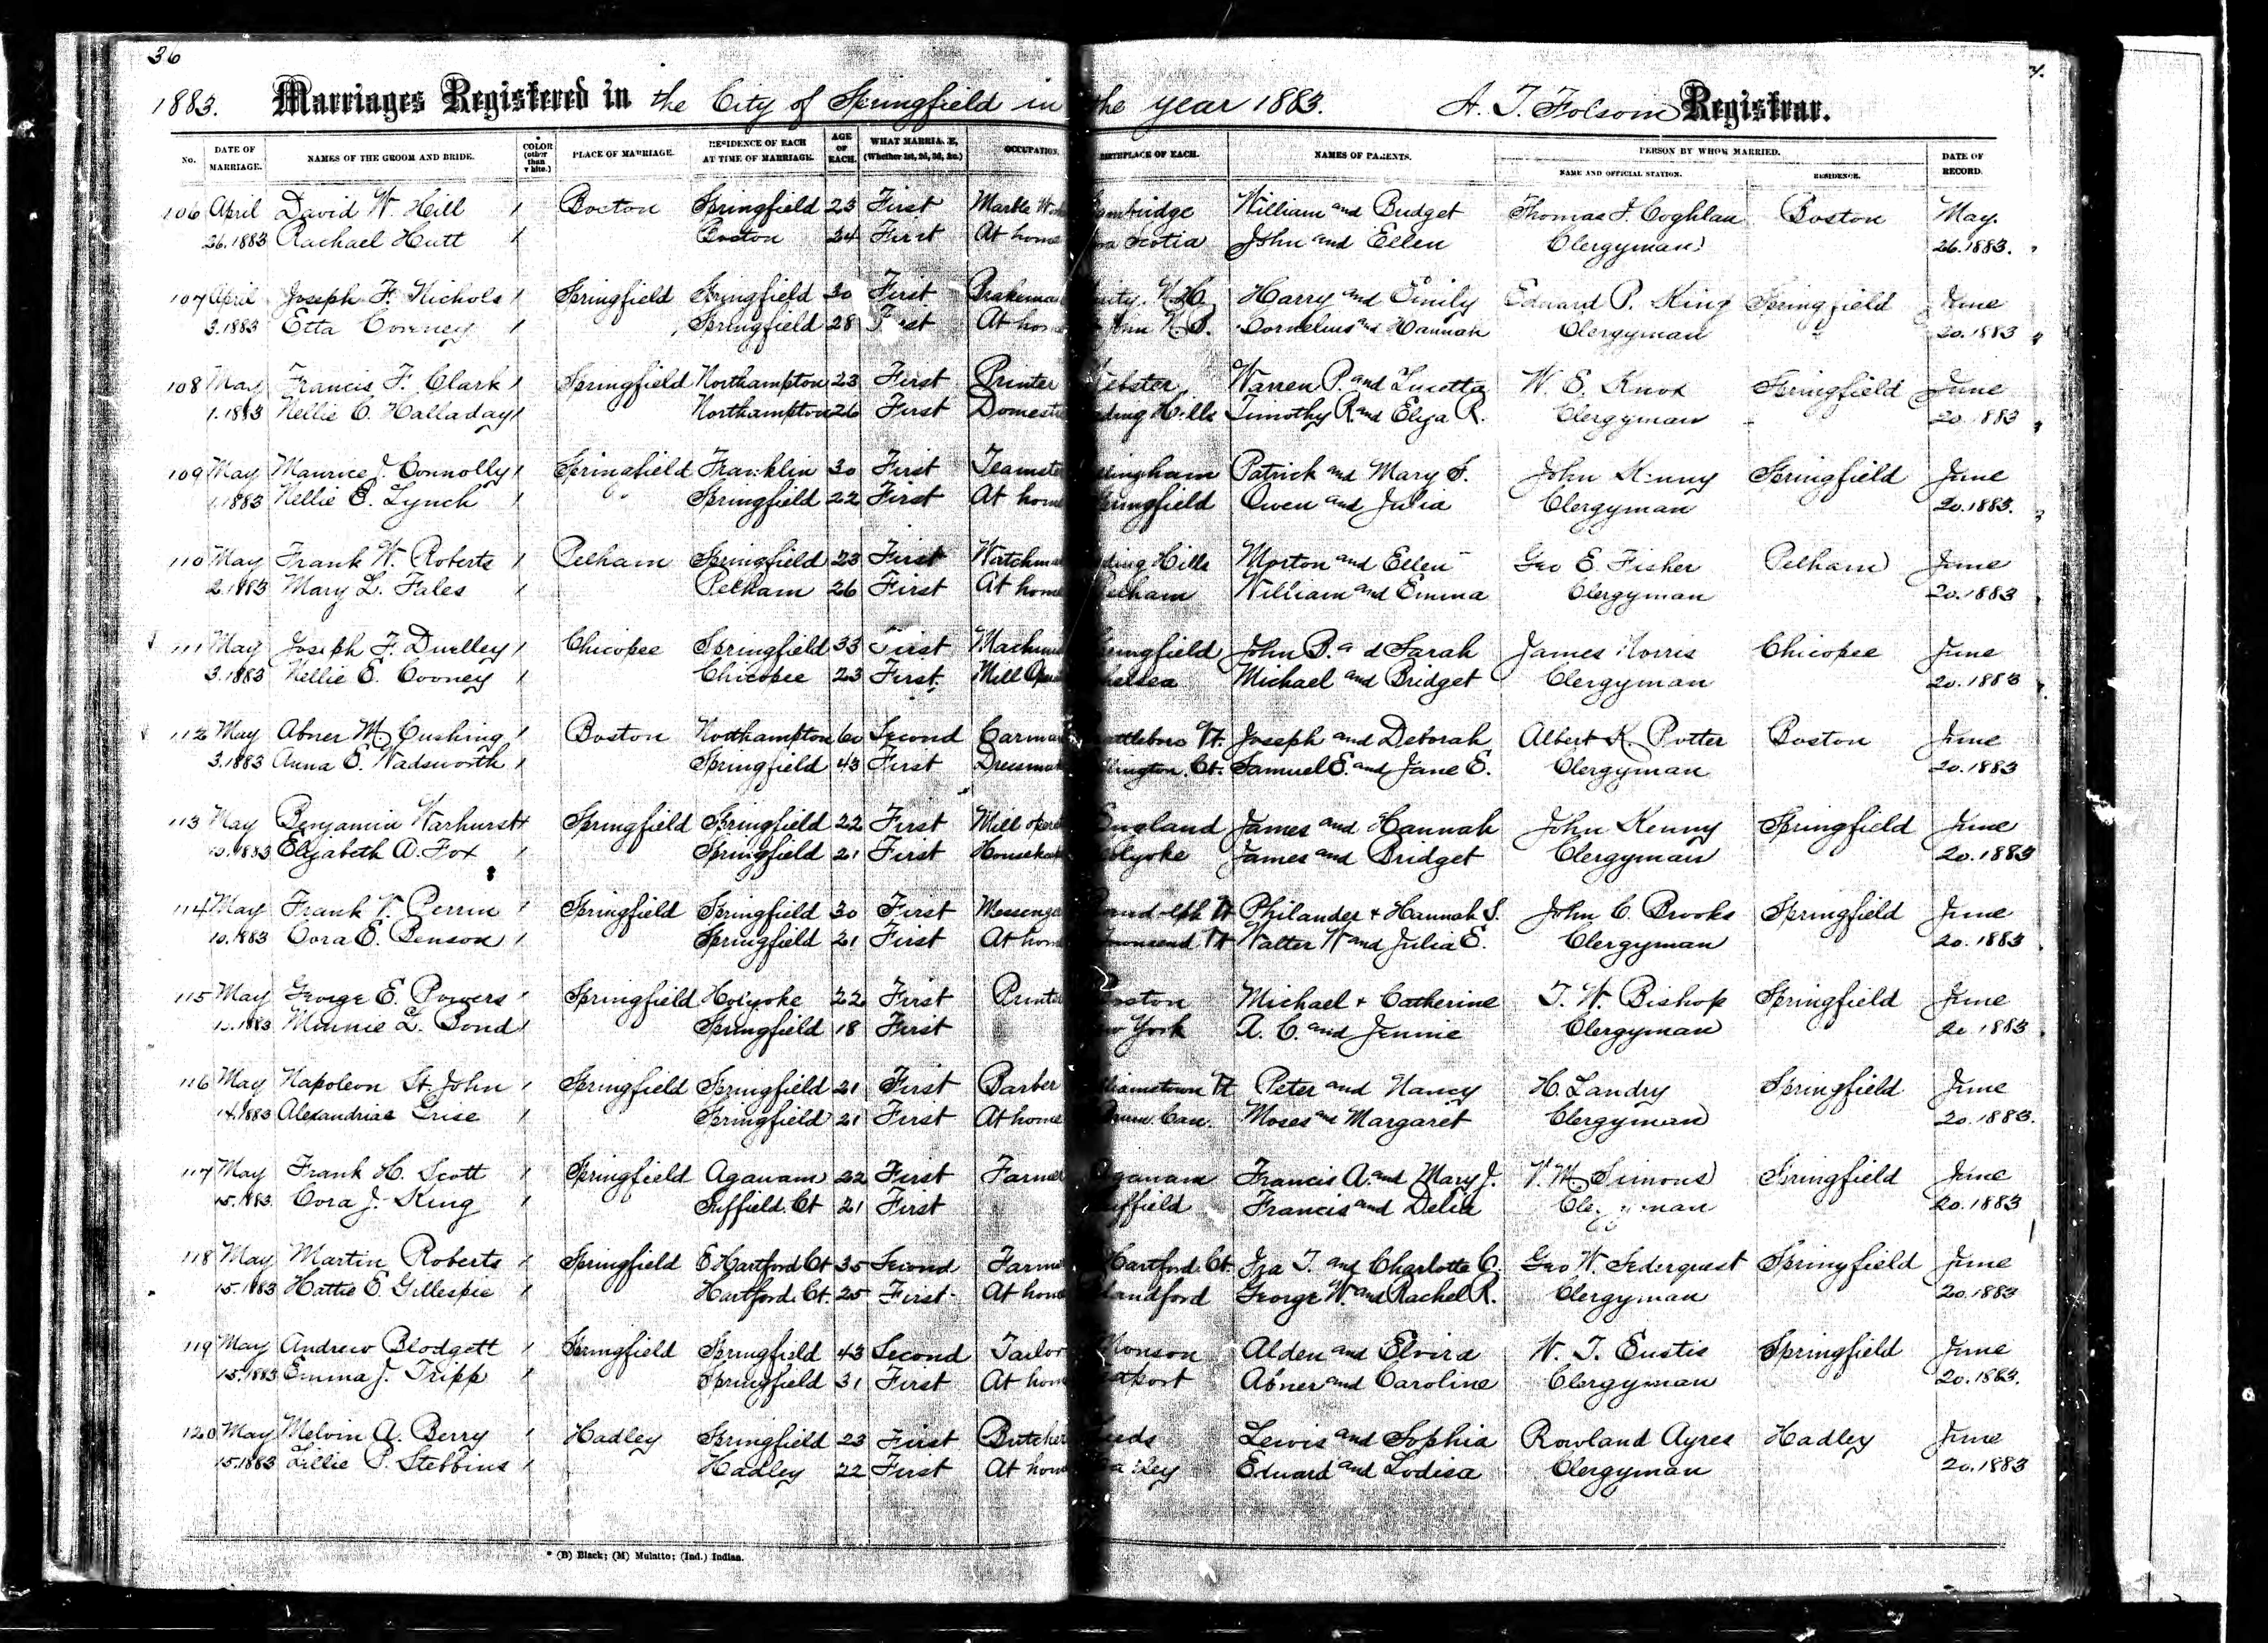 36
1883. Marriages Registered in the City of Springfield in the year 1883. A. T. Folsom Registrar.
No. DATE OF MARRIAGE. NAMES OF THE GROOM AND BRIDE. COLOR (other than white.) PLACE OF MARRIAGE. RESIDENCE OF EACH AT TIME OF MARRIAGE. AGE OF EACH. WHAT MARRIAGE, (Whether 1st, 2d, 3d, &c.) OCCUPATION. BIRTHPLACE OF EACH. NAMES OF PARENTS. PERSON BY WHOM MARRIED. NAME AND OFFICIAL STATION. RESIDENCE. DATE OF RECORD.
106 April David W. Hill Boston Springfield 23 First Marble Cambridge William and Budget Thomas F. Coghlan Boston May.
26.1883 Rachael Hutt Boston 24 First At home Scotia John and Ellen Clergyman 26.1883.
107 April Joseph F. Nichols Springfield Springfield 30 First Brakeman N.H. Harry and Emily Edward P. King Springfield June
3.1883 Etta Springfield 28 First At home John N.B. Cornelius and Hannah Clergyman 20.1883
108 May Francis F. Clark Springfield Northampton 23 First Printer Webster Warren P. and W. E. Knox Springfield June
1.1883 Nellie C. Halladay Northampton 26 First Domestic ding Hills Timothy R. and Eliza R. Clergyman 20.1883
109 May Maurice J. Connolly Springfield Franklin 30 First Teamste ingham Patrick and Mary F. John Kenny Springfield June
1.1883 Nellie E. Lynch Springfield 22 First At home Springfield Owen and Julia Clergyman 20.1883.
110 May Frank W. Roberts Pelham Springfield 23 First Watchma ding Hills Morton and Ellen Geo E. Fisher Pelham June
2.1883 Mary L. Fales Pelham 26 First At home Pelham William and Emma Clergyman 20.1883
111 May Joseph F. Duelley Chicopee Springfield 33 First Machini Springfield John B. and Sarah James Morris Chicopee June
3.1883 Nellie E. Cooney Chicopee 23 First Mill Oper helsea Michael and Bridget Clergyman 20.1883
112 May Abner M. Cushing Boston Northampton 60 Second Carman attleboro Vt. Joseph and Deborah Albert K. Potter Boston June
3.1883 Anna E. Wadsworth Springfield 43 First Dressmak llington. Ct. Samuel E. and Jane E. Clergyman 20.1883
113 May Benjamin Warhurst Springfield Springfield 22 First Mill oper England James and Hannah John Kenny Springfield June
10.1883 Elizabeth A. Fox Springfield 21 First Housek Holyoke James and Bridget Clergyman 20.1883
114 May Frank V. Perrin Springfield Springfield 30 First Messenge Randolph Vt Philander + Hannah S. John C. Brooks Springfield June
10.1883 Cora E. Benson Springfield 21 First At home Townsend Vt Walter W and Julia E. Clergyman 20.1883
115 May George E. Powers Springfield Holyoke 22 First Printe Boston Michael + Catherine T. W. Bishop Springfield June
10.1883 Minnie L. Bond Springfield 18 First New York A. C. and Jennie Clergyman 20.1883
116 May Napoleon St. John Springfield Springfield 21 First Barber liamstown Vt Peter and Nancy H. Landry Springfield June
14.1883 Alexandriae Grise Springfield 21 First At home Can. Moses and Margaret Clergyman 20.1883.
117 May Frank H. Scott Springfield Agawam 22 First Farmer Agawam Francis A. and Mary J. V. M. Simons Springfield June
15.1883. Cora J. King Suffield. Ct 21 First uffield Francis and Delia Clergyman 20.1883
118 May Martin Roberts Springfield E Hartford Ct 35 Second Farme Hartford Ct. Ira T. and Charlotte C. Geo W. Sederquest Springfield June
15.1883 Hattie E. Gillespie Hartford. Ct. 25 First At home landford George W. and Rachel R. Clergyman 20.1883
119 May Andrew Blodgett Springfield Springfield 43 Second Tailor Monson Alden and Elvira W. T. Eustis Springfield June
15.1883 Emma J. Tripp Springfield 31 First At home Abner and Caroline Clergyman 20.1883.
120 May Melvin A. Berry Hadley Springfield 23 First Butcher Leeds Lewis and Sophia Rowland Ayres Hadley June
15.1883 Lillie P. Stebbins Hadley 22 First At home Hadley Edward and Lodisa Clergyman 20.1883
* (B) Black; (M) Mulatto; (Ind.) Indian.